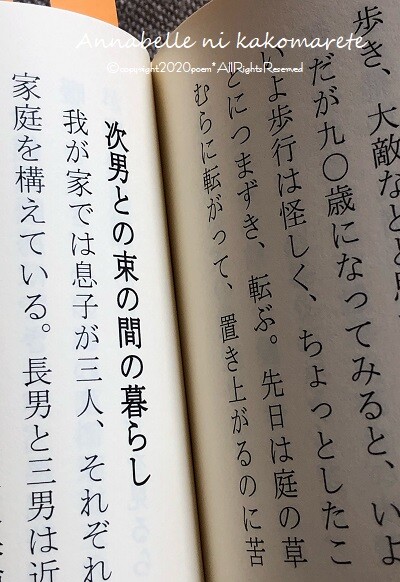 Annabelle ni kakomarete
©copyright2020poem* AllRights Reserved
歩き、大敵など
だが九〇歳になってみると、いよ
よ歩行は怪しく、ちょっとしたこ
とにつまずき、転ぶ。先日は庭の草
むらに転がって、置き上がるのに苦
次男との束の間の暮らし
我が家では息子が三人、それぞれ
家庭を構えている。長男と三男は近